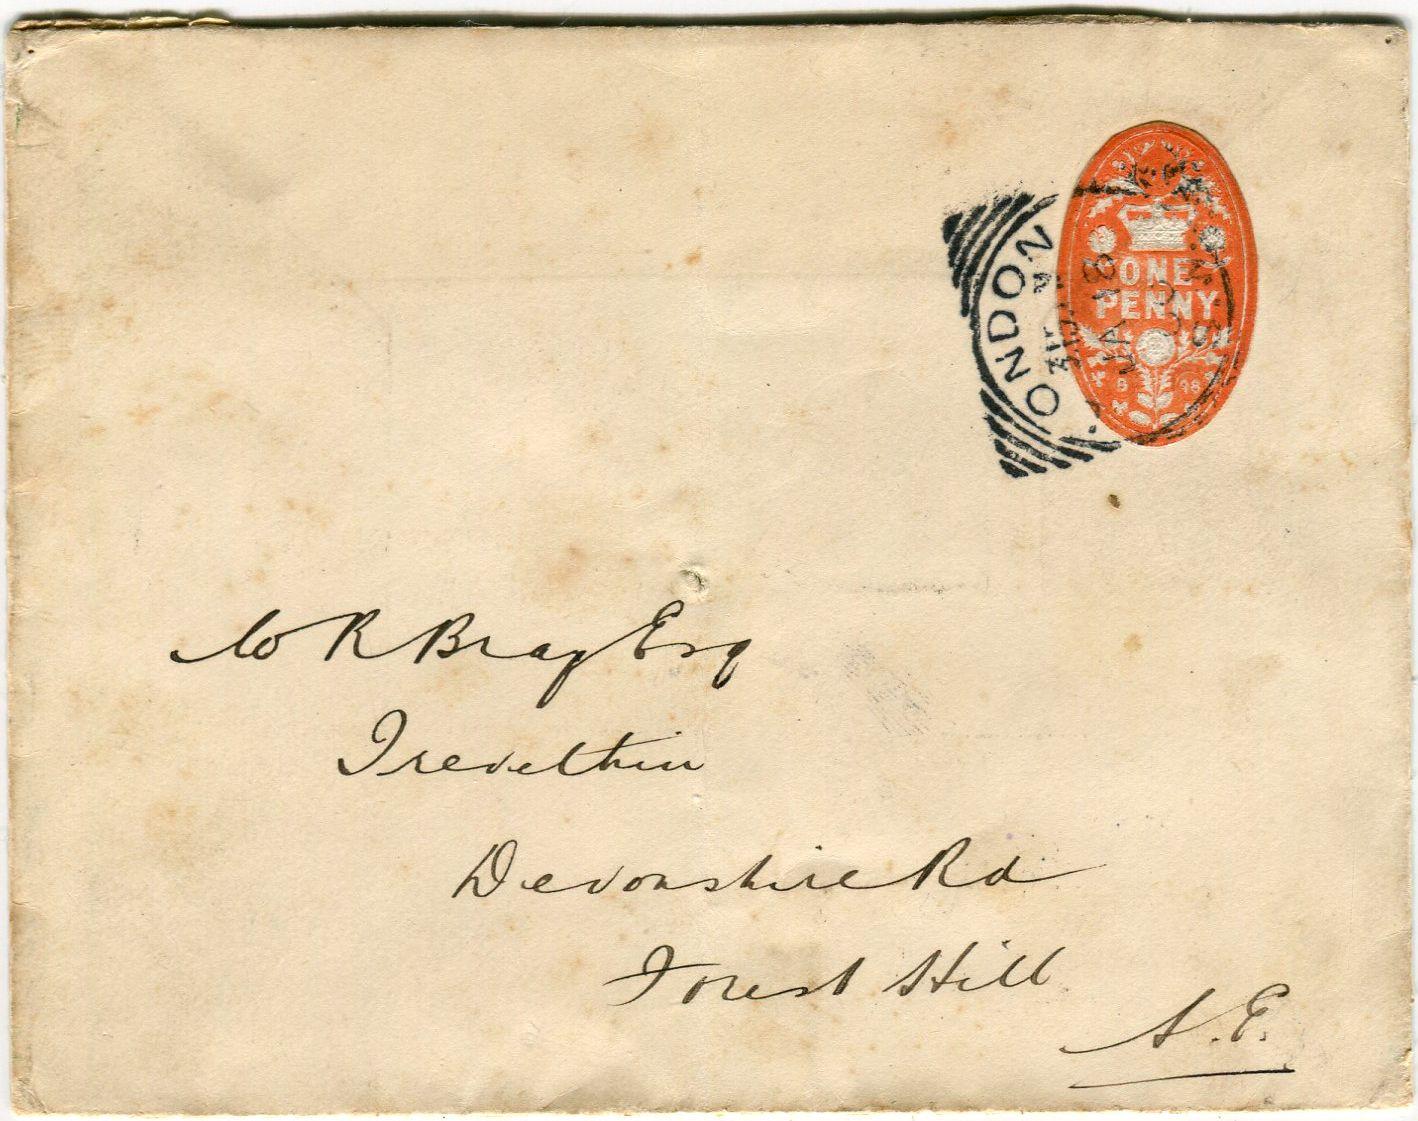 LONDON S.W.
JA 18
ONE
PENNY
W R Bray Esq
Trevethin
Devonshire Rd
Forest Hill
S.E.